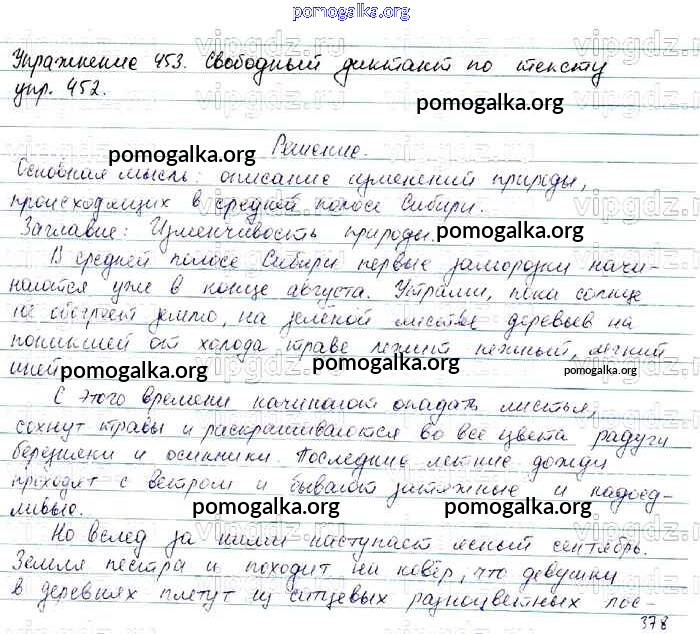 pomogalka.org
Упражнение 453. Свободный диктант по тексту
упр. 452.
pomogalka.org
Решение.
pomogalka.org
Основная мысль: описание изменений природы,
происходящих в средней полосе Сибири.
Заглавие: Изменчивость природы.
pomogalka.org
В средней полосе Сибири первые заморозки начи-
наются уже в конце августа. Утрами, пока солнце
не обогреет землю, на зелёной листве деревьев на
поникшей от холода траве лежит нежный, мягкий
иней
pomogalka.org pomogalka.org pomogalka.org
С этого времени начинают опадать листья,
сохнут травы и раскрашиваются во все цвета радуги
березняки и осинники. Последние летние дожди
проходят с ветром и бывают затяжные и надоед-
ливые.
pomogalka.org pomogalka.org
Но вслед за ними наступает ясный сентябрь.
Земля пестра и походит на ковёр, что девушки
в деревнях плетут из ситцевых разноцветных лос-
378